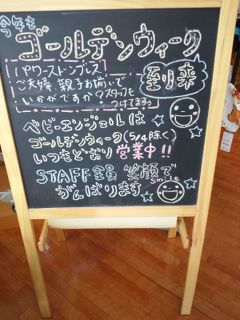 今年も
ゴールデンウィーク
到来
パワーストーンブレス
ご夫婦、親子お揃いで
いかがですか?スタッフが
つけてます♪
ベビーエンジェルは
ゴールデンウィーク(5/4除く)
いつもどおり営業中!!
STAFF全員 笑顔で
がんばります